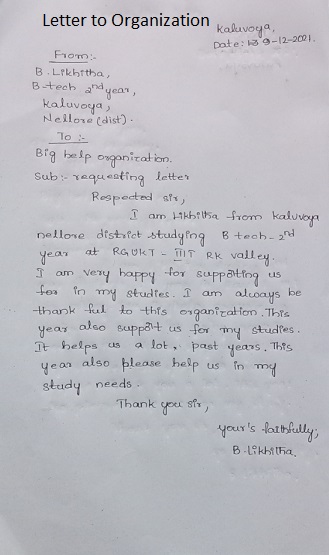 Letter to Organization
Kaluvoya,
Date: 9-12-2021.
From:-
B. Likhitha,
B-tech 2nd year,
Kaluvoya,
Nellore (dist).
To :-
Big help organization.
Sub:- requesting letter
Respected sir,
I am Likhitha from kaluvoya
nellore district studying B tech-2nd
year at RGUKT - IIIT RK valley.
I am very happy for suppoting us
for in my studies. I am always be
thank ful to this organization. This
year also suppot us for my studies.
It helps us a lot, past years. This
year also please help us in my
study needs.
Thank you sir,
your's faithfully;
B. Likhitha.